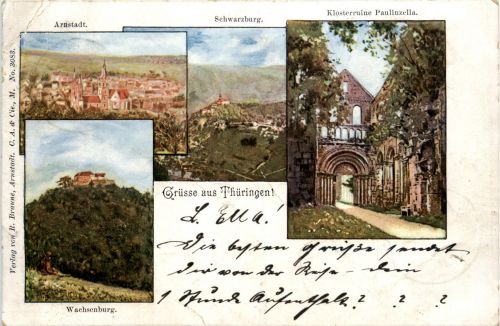 Arnstadt.
Schwarzburg.
Klosterruine Paulinzella.
Verlag von R. Brauns, Arnstadt. C. A. & Cie., M. No. 3083.
Wachsenburg.
Grüsse aus Thüringen!
L. Ella!
Die besten Grüße sendet
dir von der Reise – dein
1 Stunde Aufenthalt? ? ?